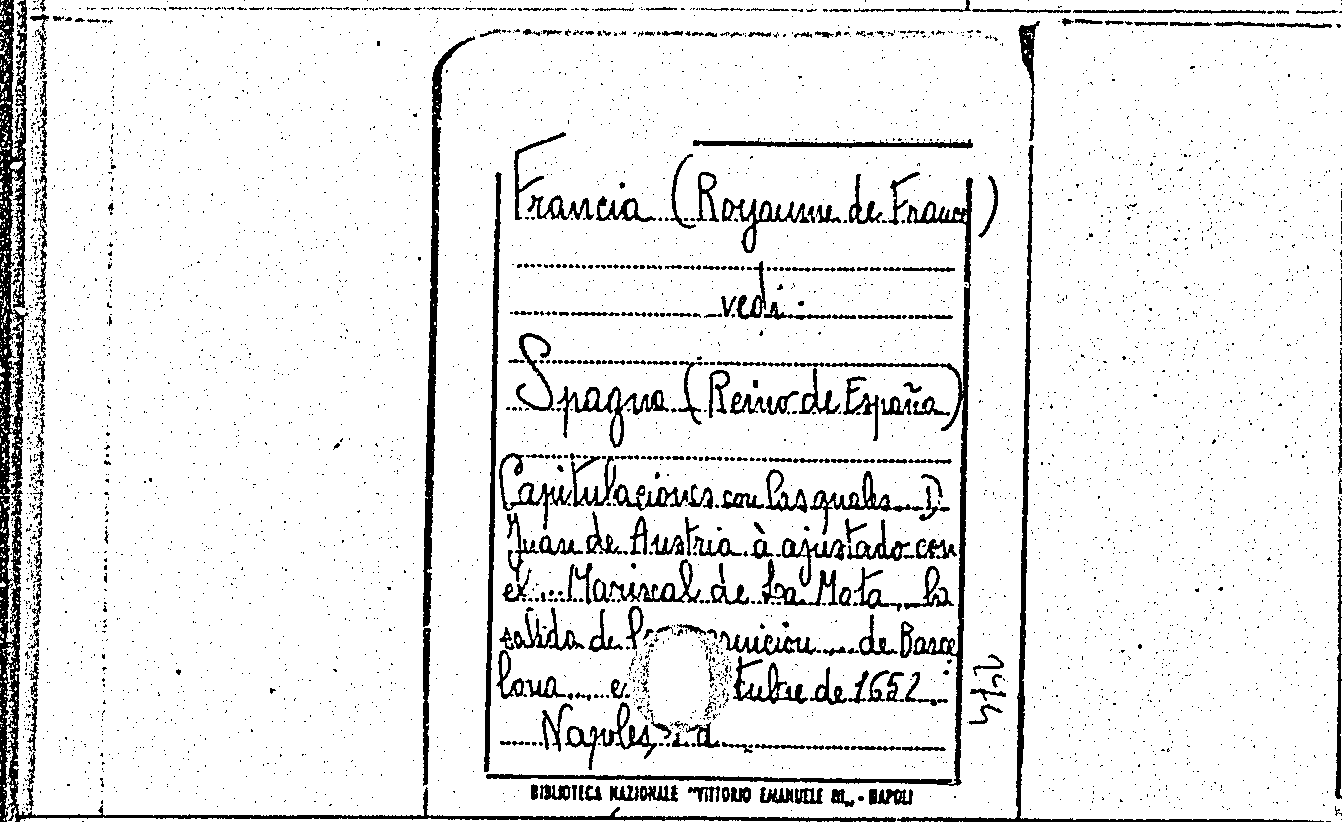 Francia (Royaume de France)
vedi:
Spagna (Reino de España)
Capitulaciones con las quales... D.
Juan de Austria à ajustado con
el... Mariscal de La Mota, la
salida de ... de Barce
lona... de 1652.
Napoles, s.d.
2/2
BIBLIOTECA NAZIONALE "VITTORIO EMANUELE III" - NAPOLI